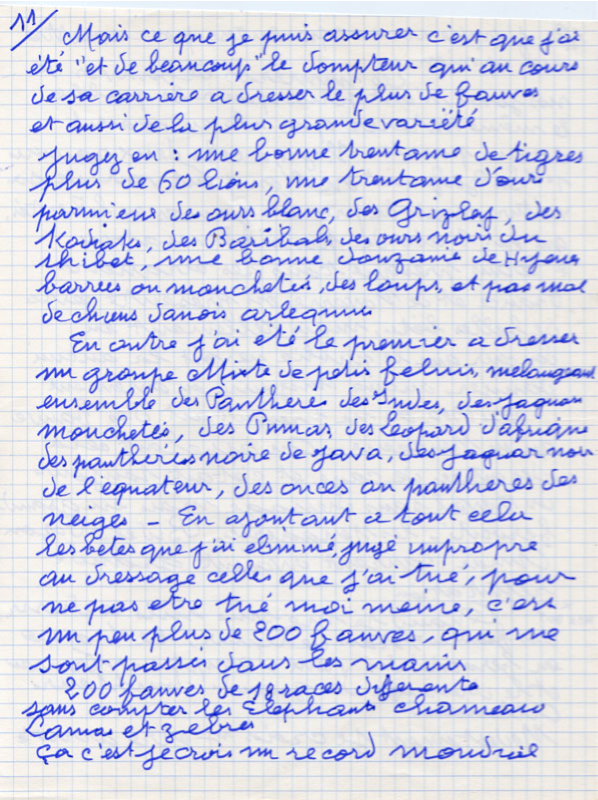 11/
Mais ce que je puis assurer c'est que j'ai
été "et de beaucoup" le dompteur qui au cours
de sa carrière a dresser le plus de fauves
et aussi de la plus grande variété
jugez en : une bonne trentaine de tigres
plus de 60 lions, une trentaine d'ours
parmi eux des ours blanc, des Grizley, des
Kodiaks, des Baribals, des ours noirs du
thibet, une bonne douzaine de Hyènes
barrées ou mouchetés, des loups, et pas mal
de chiens danois arlequins
En outre j'ai été le premier a dresser
un groupe Mixte de petis felins, mélangeant
ensemble des Panthères des Indes, des jaguars
mouchetés, des Pumas, des Léopard d'afrique
des panthères noire de Java, des jaguar noir
de l'équateur, des onces ou panthères des
neiges - En ajoutant a tout cela
les betes que j'ai elimmé, jugé impropre
au dressage celles que j'ai tué, pour
ne pas etre tué moi meme, c'est
un peu plus de 200 fauves, qui me
sont passés dans les mains
200 fauves de 18 races differente
sans compter les Elephants chameaux
Lamas et zebres
ça c'est je crois un record mondial